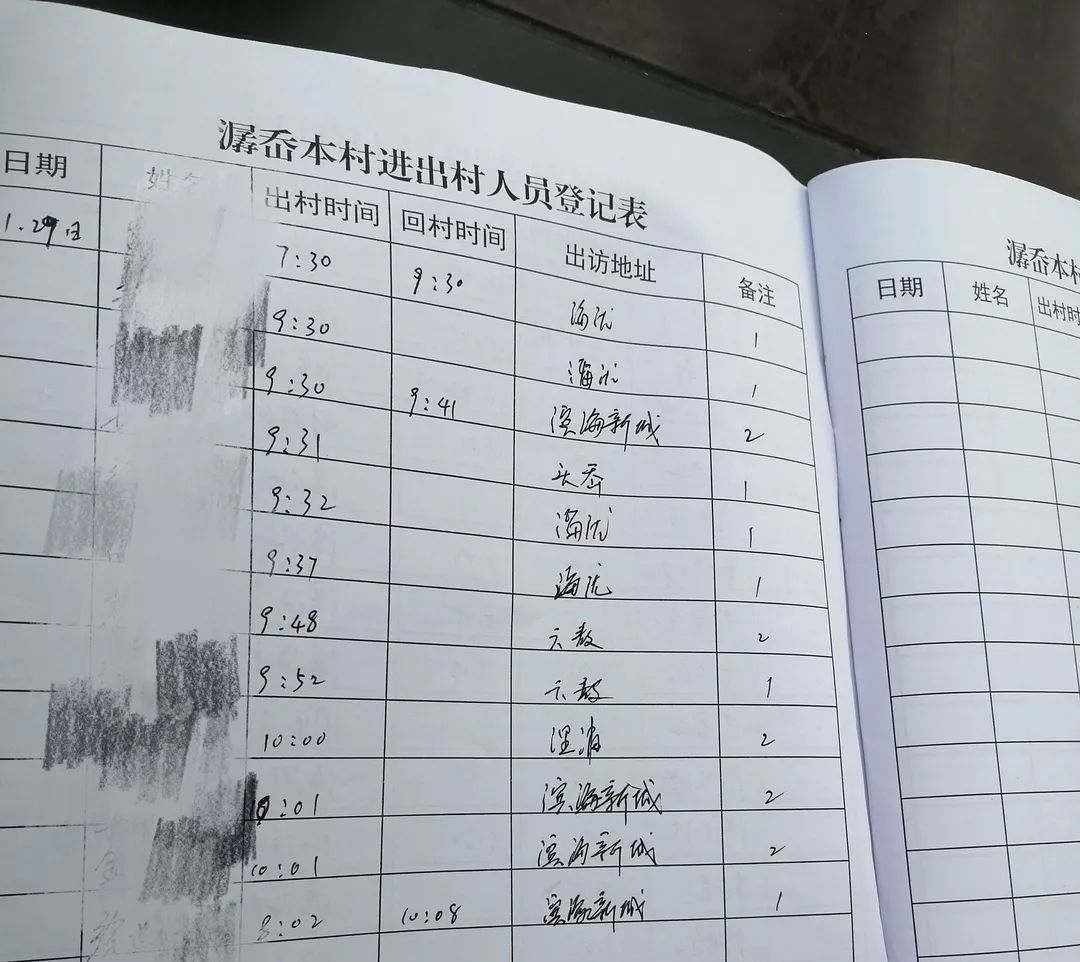 潺岙本村进出村人员登记表
日期 姓名 出村时间 回村时间 出访地址 备注
1.29日 7:30 9:30 海游 1
9:30 海游 1
9:30 9:41 滨海新城 2
9:31 头岙 1
9:32 海游 1
9:37 海游 1
9:48 六敖 2
9:52 六敖 1
10:00 浬浦 2
10:01 滨海新城 2
10:01 滨海新城 2
8:02 10:08 滨海新城 1
潺岙本村
日期 姓名 出村时